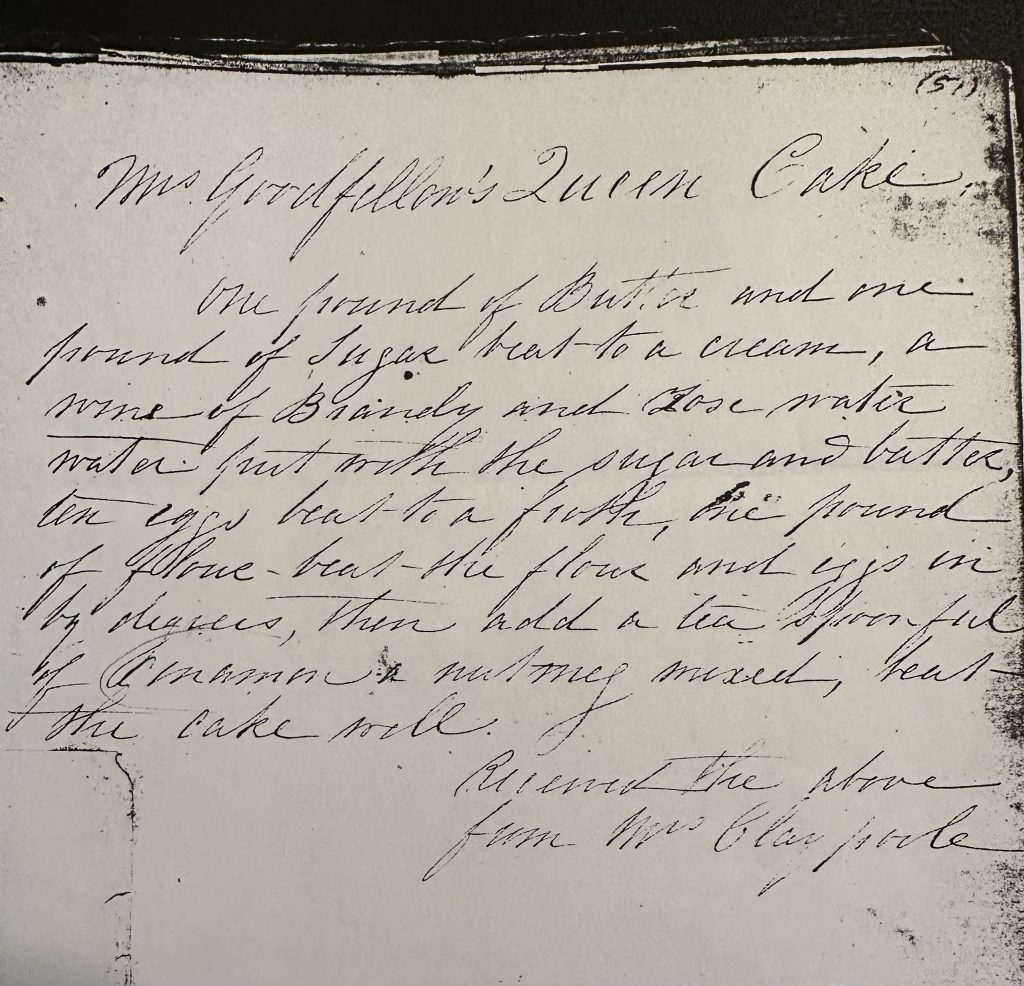 (51)
Mrs Goodfellow's Queen Cake.
One pound of Butter and one
pound of Sugar beat to a cream, a
wine of Brandy and Rose water
water put with the sugar and butter,
ten eggs beat to a froth, one pound
of flour - beat the flour and eggs in
by degrees, then add a tea spoonful
of Cinamon & nutmeg mixed, beat
the cake well.
Received the above
from Mrs Claypoole